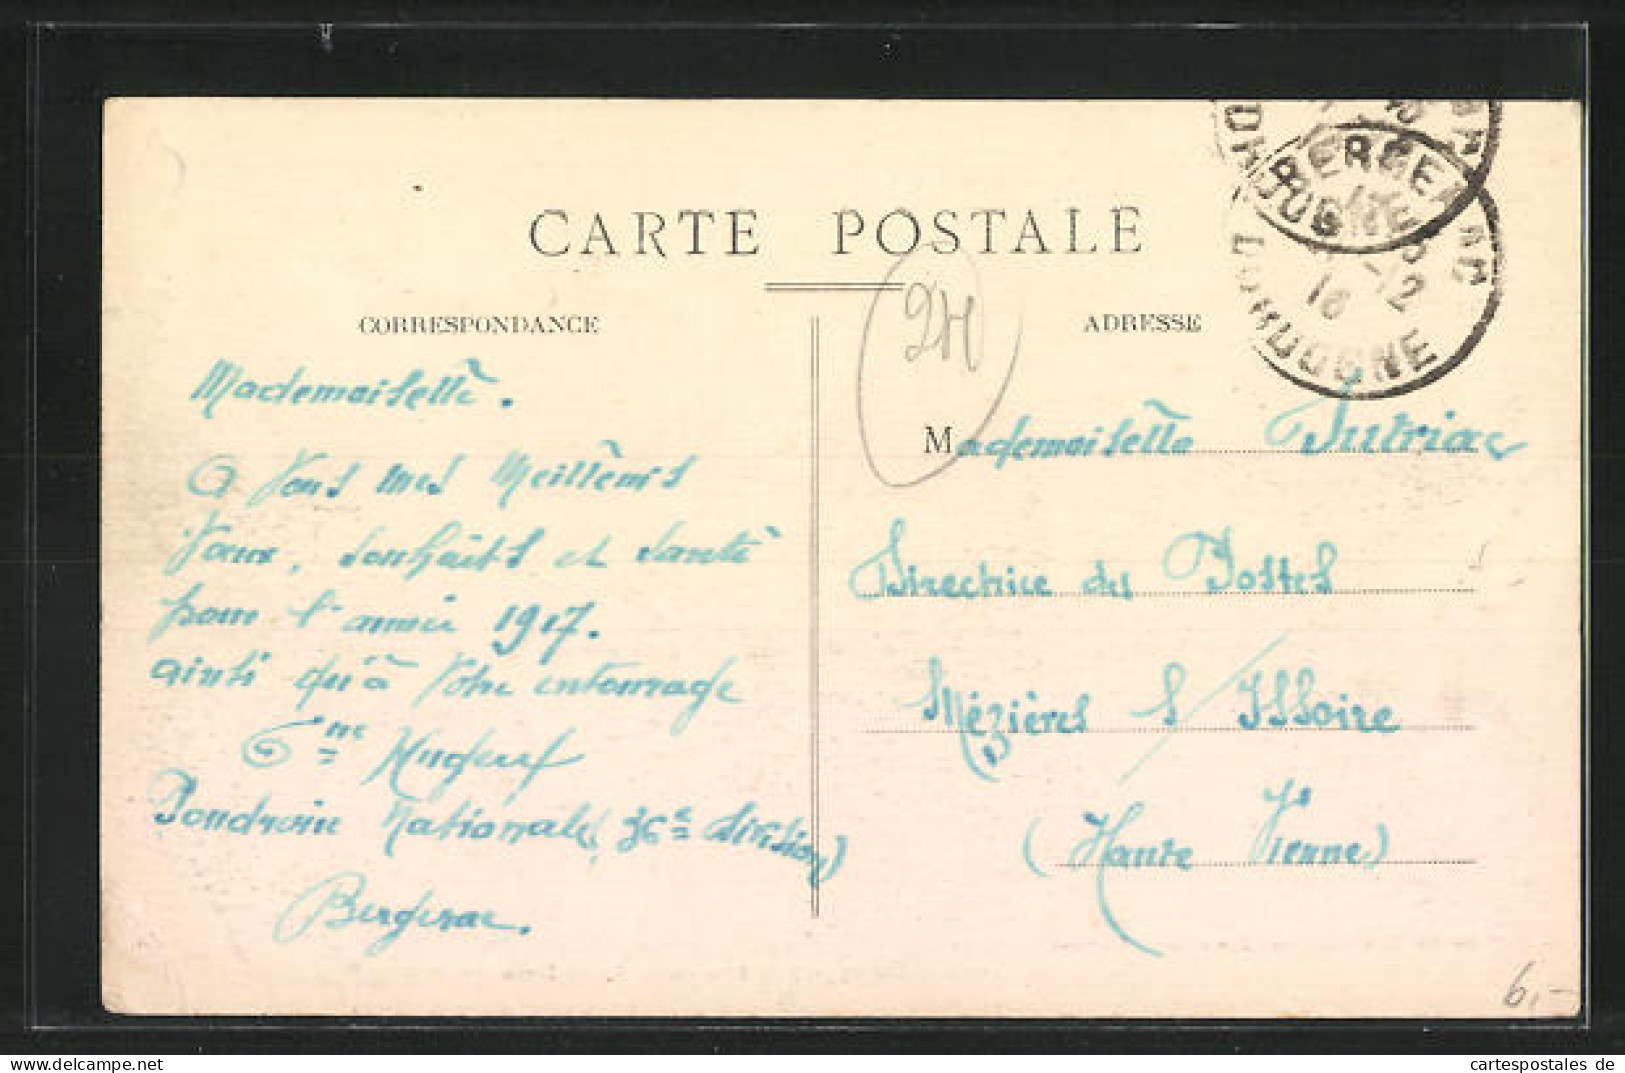 CARTE POSTALE
CORRESPONDANCE
Mademoiselle.
A Vous mes Meilleurs
Voeux, souhaits et santé
pour l'année 1917.
ainsi qu'à Votre entourage
Poudrerie Nationale (36e division)
Bergerac.
ADRESSE
Mademoiselle Dutriac
Directrice des Postes
Mézières s/Issoire
(Haute Vienne)
BERGERAC
DORDOGNE
BERGERAC
12
16
DORDOGNE
24
6,-
cartespostales de